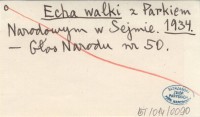 Echa walki z Parkiem
Narodowym w Sejmie. 1934.
— Głos Narodu nr 50.
BT/014/0090